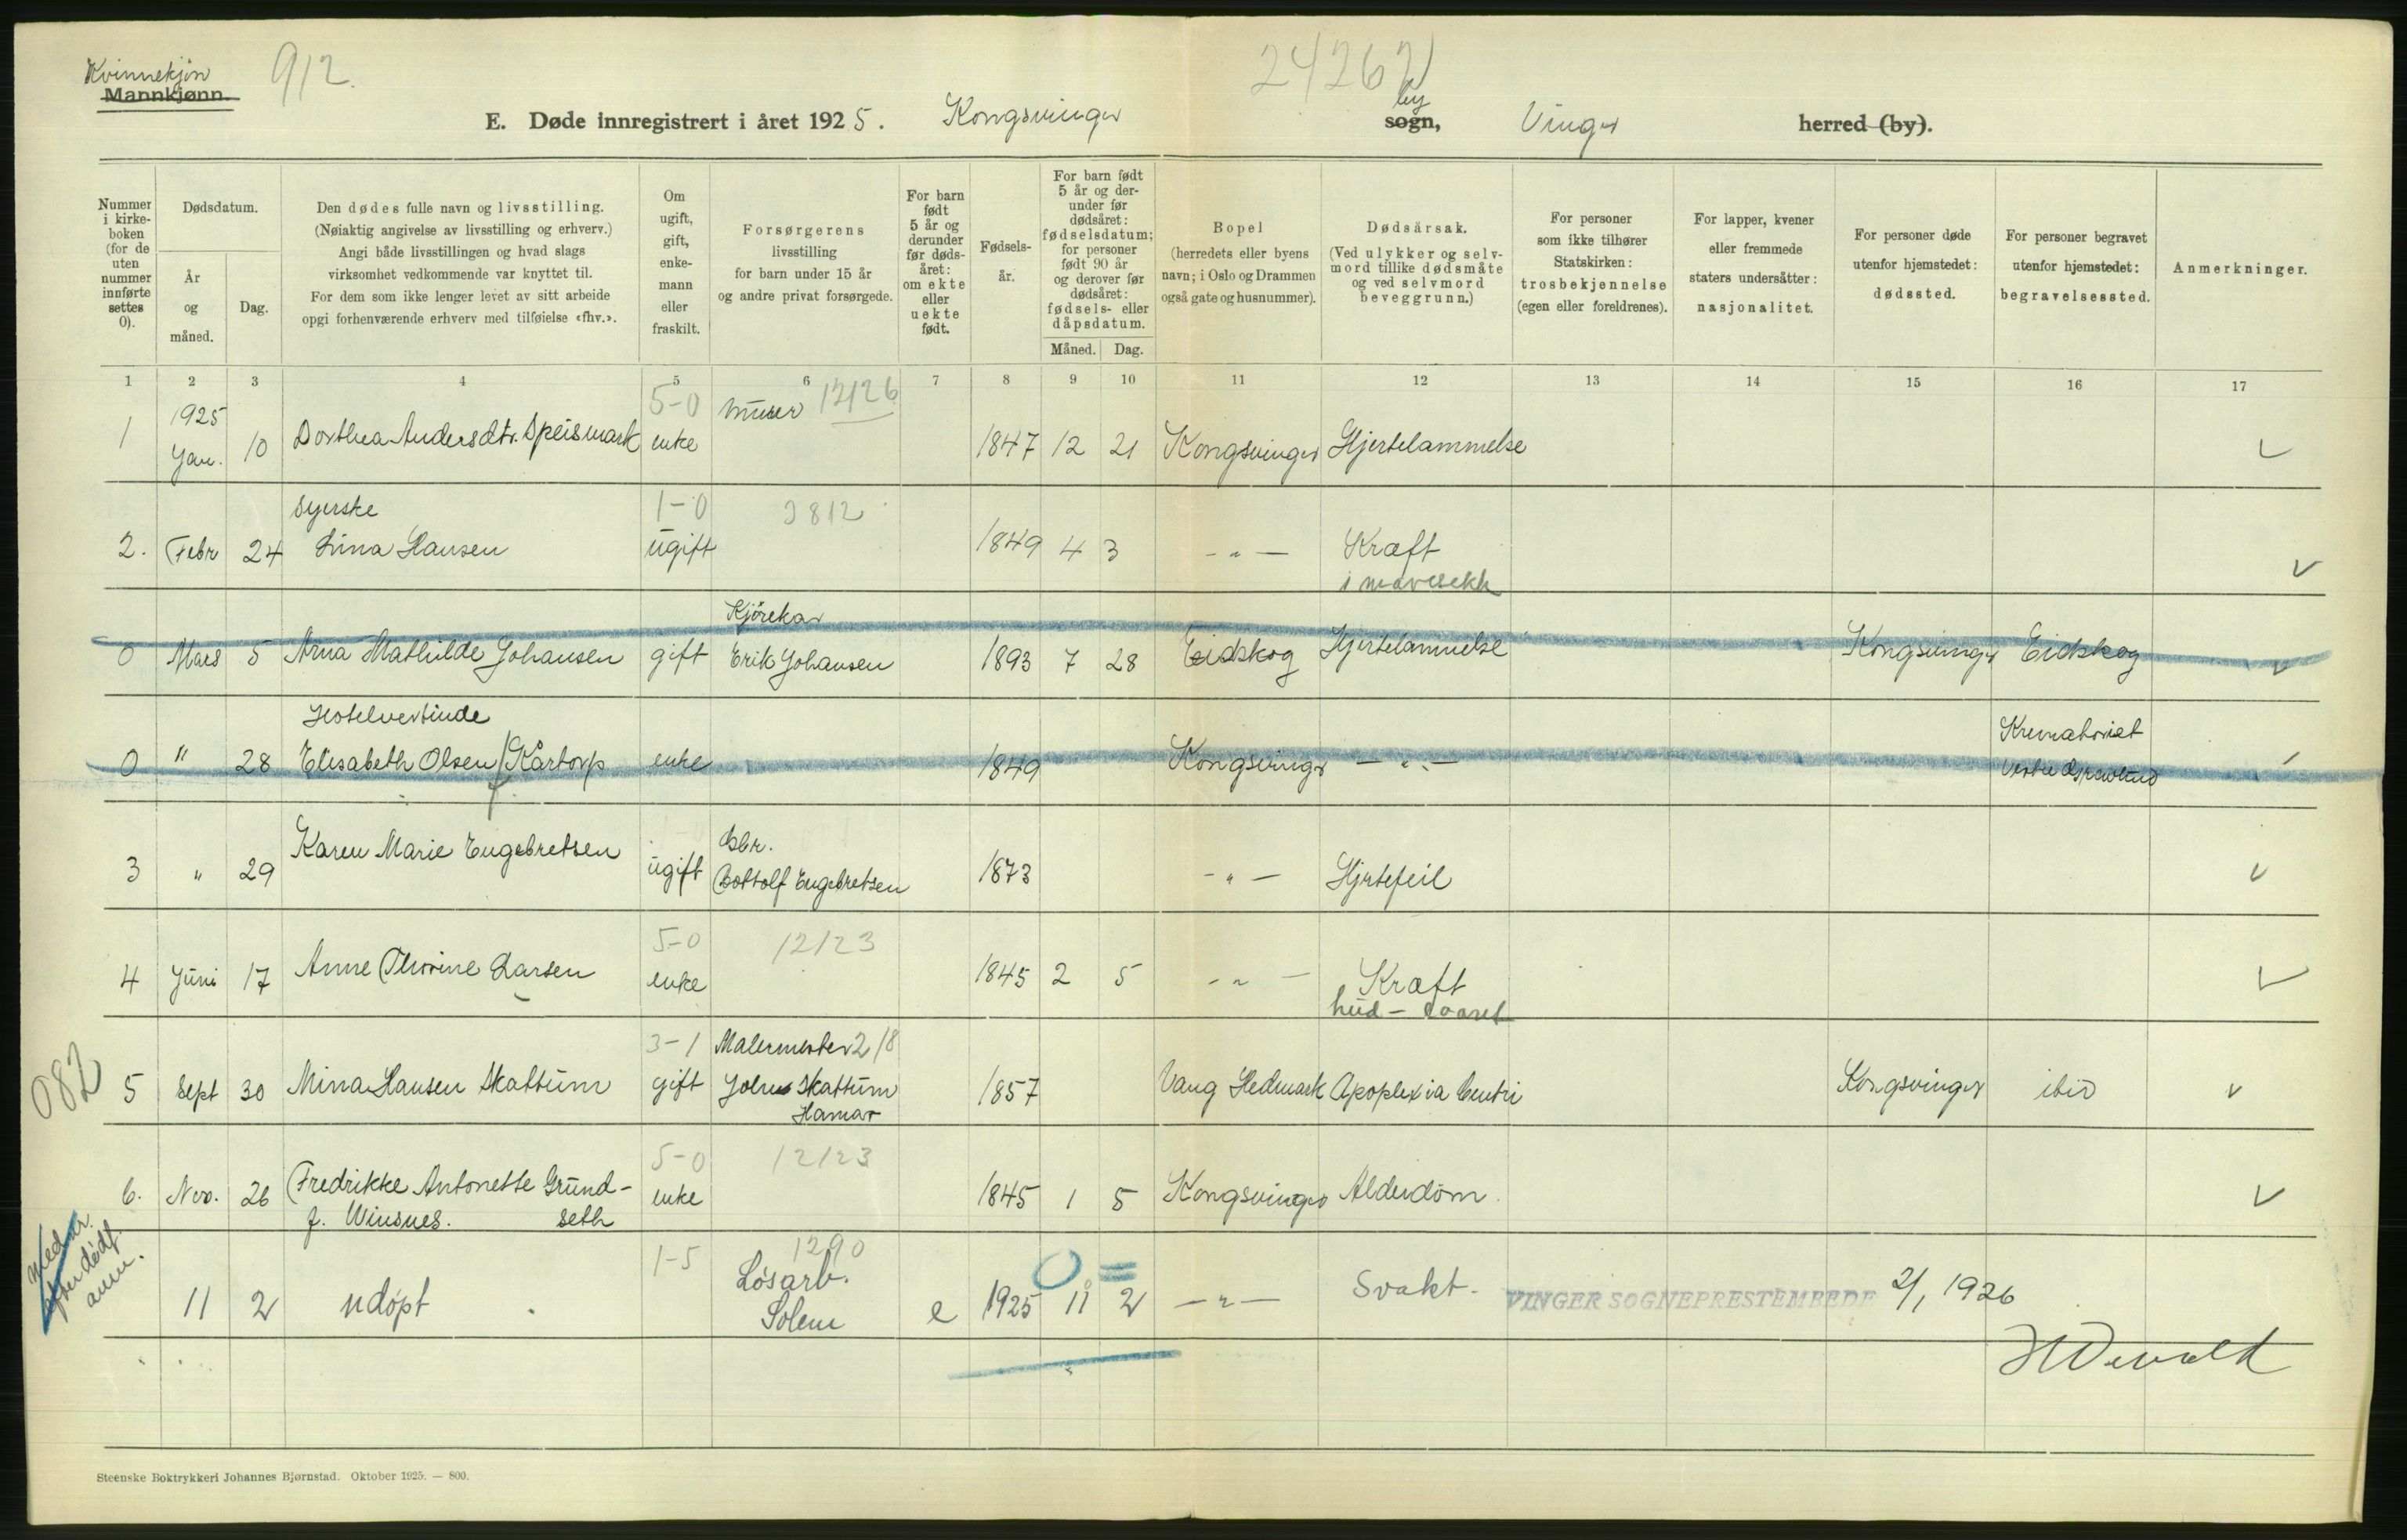 Kvinnekjøn
912.
Mannkjønn.
24262
E. Døde innregistrert i året 1925. Kongsvinger by sogn, Vinger herred (by).
Nummer i kirkeboken (for de uten nummer innførte settes 0).
Dødsdatum.
År og måned.
Dag.
Den dødes fulle navn og livsstilling.
(Nøiaktig angivelse av livsstilling og erhverv.)
Angi både livsstillingen og hvad slags
virksomhet vedkommende var knyttet til.
For dem som ikke lenger levet av sitt arbeide
opgi forhenværende erhverv med tilføielse «fhv.».
Om ugift, gift, enkemann eller fraskilt.
Forsørgerens
livsstilling
for barn under 15 år
og andre privat forsørgede.
For barn født 5 år og derunder før dødsåret: om ekte eller uekte født.
Fødselsår.
For barn født 5 år og derunder før dødsåret: fødselsdatum; for personer født 90 år og derover før dødsåret: fødsels- eller dåpsdatum.
Måned. Dag.
Bopel
(herredets eller byens
navn; i Oslo og Drammen
også gate og husnummer).
Dødsårsak.
(Ved ulykker og selvmord tillike dødsmåte
og ved selvmord
beveggrunn.)
For personer
som ikke tilhører
Statskirken:
trosbekjennelse
(egen eller foreldrenes).
For lapper, kvener
eller fremmede
staters undersåtter:
nasjonalitet.
For personer døde
utenfor hjemstedet:
dødssted.
For personer begravet
utenfor hjemstedet:
begravelsessted.
Anmerkninger.
1 2 3 4 5 6 7 8 9 10 11 12 13 14 15 16 17
5-0 murer 12126
1 1925 Jan. 10 Dorthea Andersdtr. Speismark enke 1847 12 21 Kongsvinger Hjertelammelse
Syerske 1-0
2. Febr 24 Lina Hansen ugift 1849 4 3 - " - Kræft
i mavesekk
Kjørekar
0 Mars 5 Arna Mathilde Johansen gift Erik Johansen 1893 7 28 Eidskog Hjertelammelse Kongsvinger Eidskog
Hotelvertinde Krematoriet
0 " 28 Elisabeth Olsen Kårtorp enke 1849 Kongsvinger - " - Vestre Gravlund
Gbr.
3 " 29 Karen Marie Engebretsen ugift Bottolf Engebretsen 1873 - " - Hjertefeil
5-0 12123
4 Juni 17 Anne Thorine Larsen enke 1845 2 5 - " - Kræft
hud -
082
3-1 Malermester 218
5 Sept 30 Mina Hansen Skattum gift Johs Skattum 1857 Vang Hedmark Apoplexia Kongsvinger ibid
Hamar
5-0 12123
6. Nov. 26 Fredrikke Antonette Grund- enke 1845 1 5 Kongsvinger Alderdom.
f. Winsnes. seth
1-5 1290
11 2 udøpt Løsarb. e 1925 11 2 - " - Svakt. VINGER SOGNEPRESTEMBEDE 2/1 1926
Solem
Steenske Boktrykkeri Johannes Bjørnstad. Oktober 1925. — 800.